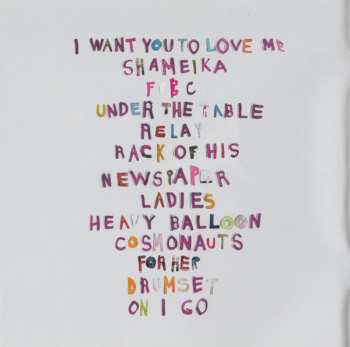 I WANT YOU TO LOVE ME
SHAMEIKA
FTBC
UNDER THE TABLE
RELAY
RACK OF HIS
NEWSPAPER
LADIES
HEAVY BALLOON
COSMONAUTS
FOR HER
DRUMSET
ON I GO